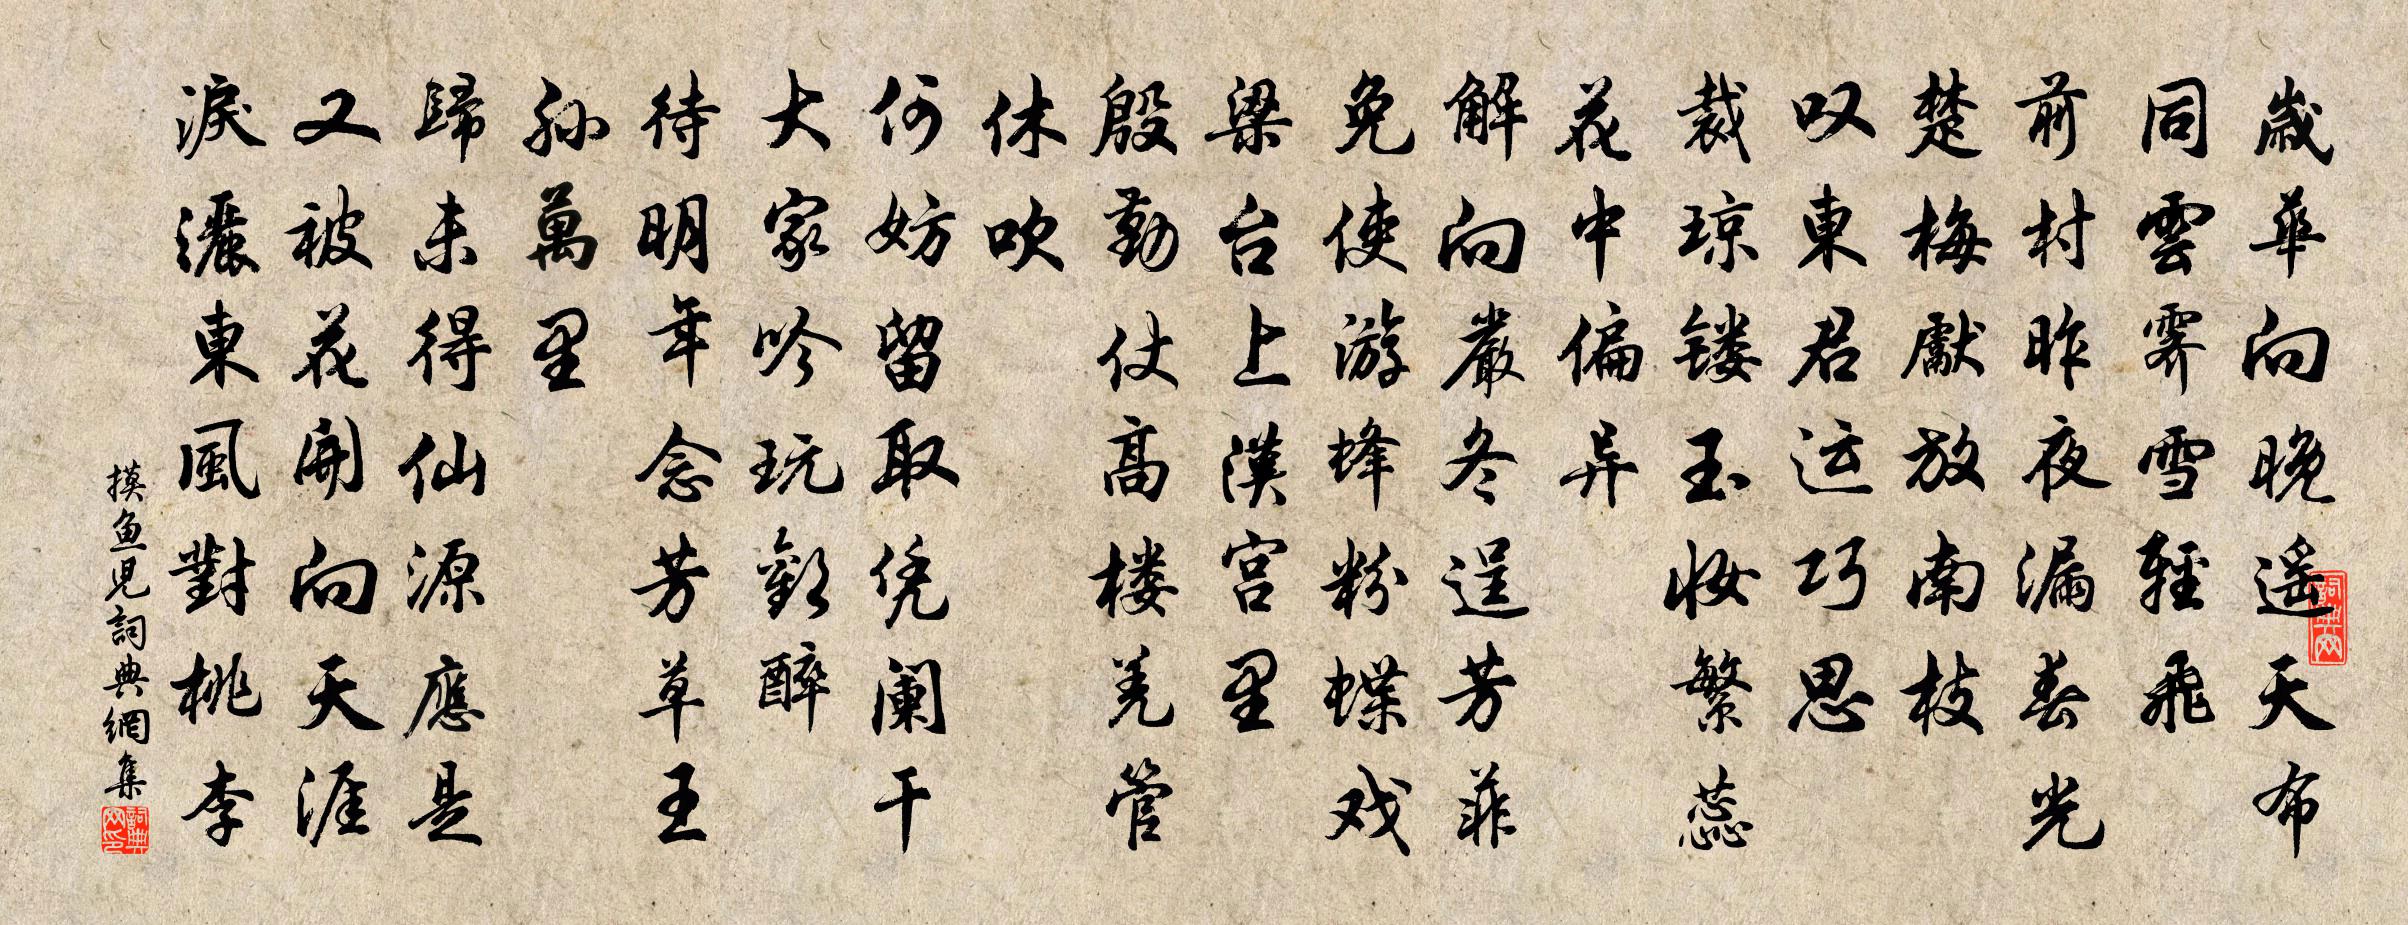 歲華向晚遥天布
同雲霁雪輕飛
前村昨夜漏春光
楚梅獻放南枝
叹東君运巧思
裁琼镂玉妝繁蕊
花中偏异
解向嚴冬逞芳菲
免使游蜂粉蝶戏
梁台上漢宫里
殷勤仗高楼羌管
休吹
何妨留取凭阑干
大家吟玩歡醉
待明年念芳草王
孙萬里
歸未得仙源應是
又被花開向天涯
淚灑東風對桃李
摸鱼児詞典網集
詞典网
詞典网印